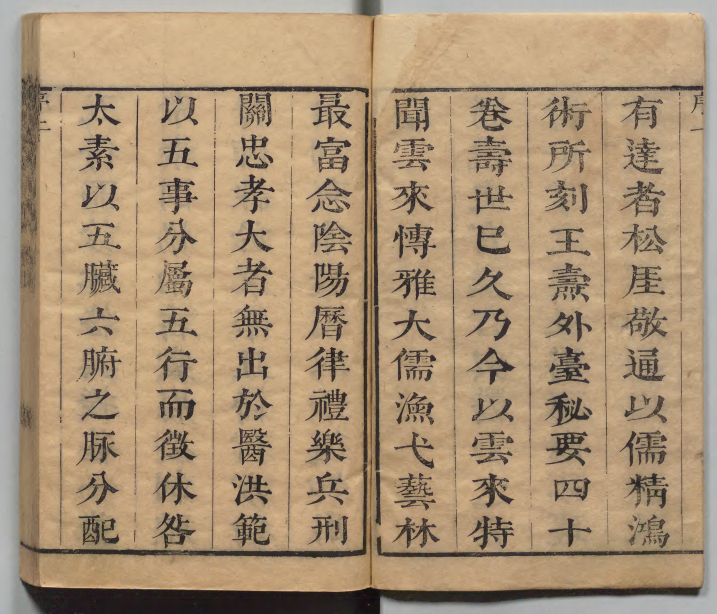 有達者松厓敬通以儒精鴻
術所刻王燾外臺秘要四十
卷壽世已久乃今以雲來特
聞雲來愽雅大儒漁弋藝林
最富念陰陽曆律禮樂兵刑
關忠孝大者無出於醫洪範
以五事分屬五行而徵休咎
太素以五臟六腑之脉分配